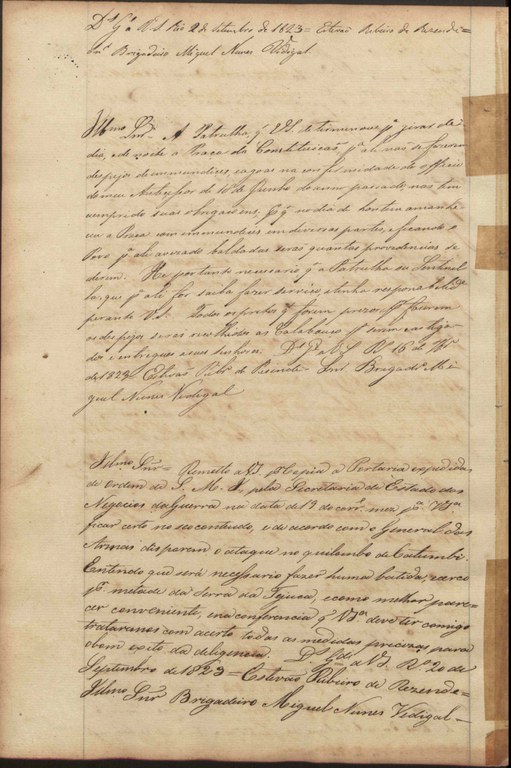 Ds Ge a V S Rio 2 de Setembro de 1823 = Estevão Ribeiro de Rezende =
Snr Brigadeiro Miguel Nunes Vidigal
Illmo Snr = A Patrulha, q VS. determinou q girasse de
dia, e de noite a Praça da Constituicaõ pa ali naõ se fazerem
despejo de immundicies na conformidade do officio
de meu Antecessor de 10 de Junho do anno passado, naõ tem
cumprido suas obrigaçoens, pr q no dia de hontem amanhe
ceo a Praça com immundicies em diversas partes, e ficando o
Povo baldadas quantas providencias se
deram. He portanto necessario q a Patrulha ou Sentinel
la q pa ali for saiba fazer serviço, e tenha responsabilide
perante VS. Todos os pretos q forem prezos pr fazerem
os despejos seraõ recolhidos ao Calabouço pa serem castiga
dos e entregues a seus senhores. Ds Ge a VS Ro 16 de
de 1823 Estevaõ Ribro de Rezende = Snr Brigadro Mi
guel Nunes Vidigal
Illmo Snr = Remetto a VS. por Copia a Portaria expedida
de ordem de S. M. I. pela Secretaria de Estado dos
Negocios da Guerra na data de 13 do corre mez pa VSa
ficar certo no seo contheudo, e de acordo com o General das
Armas disporem o ataque no quilombo de Catumbi.
Entendo que será necessario fazer huma batida, e cerco
pr metade da Serra da Tejuca, e como melhor pare-
cer conveniente, e na conferencia q VSa deve ter comigo
trataremos com acerto todas as medidas precizas para
o bom exito da diligencia. Ds Gde a VS. Ro 20 de
Septembro de 1823 = Estevaõ Ribeiro de Rezende =
Illmo Snr Brigadeiro Miguel Nunes Vidigal =